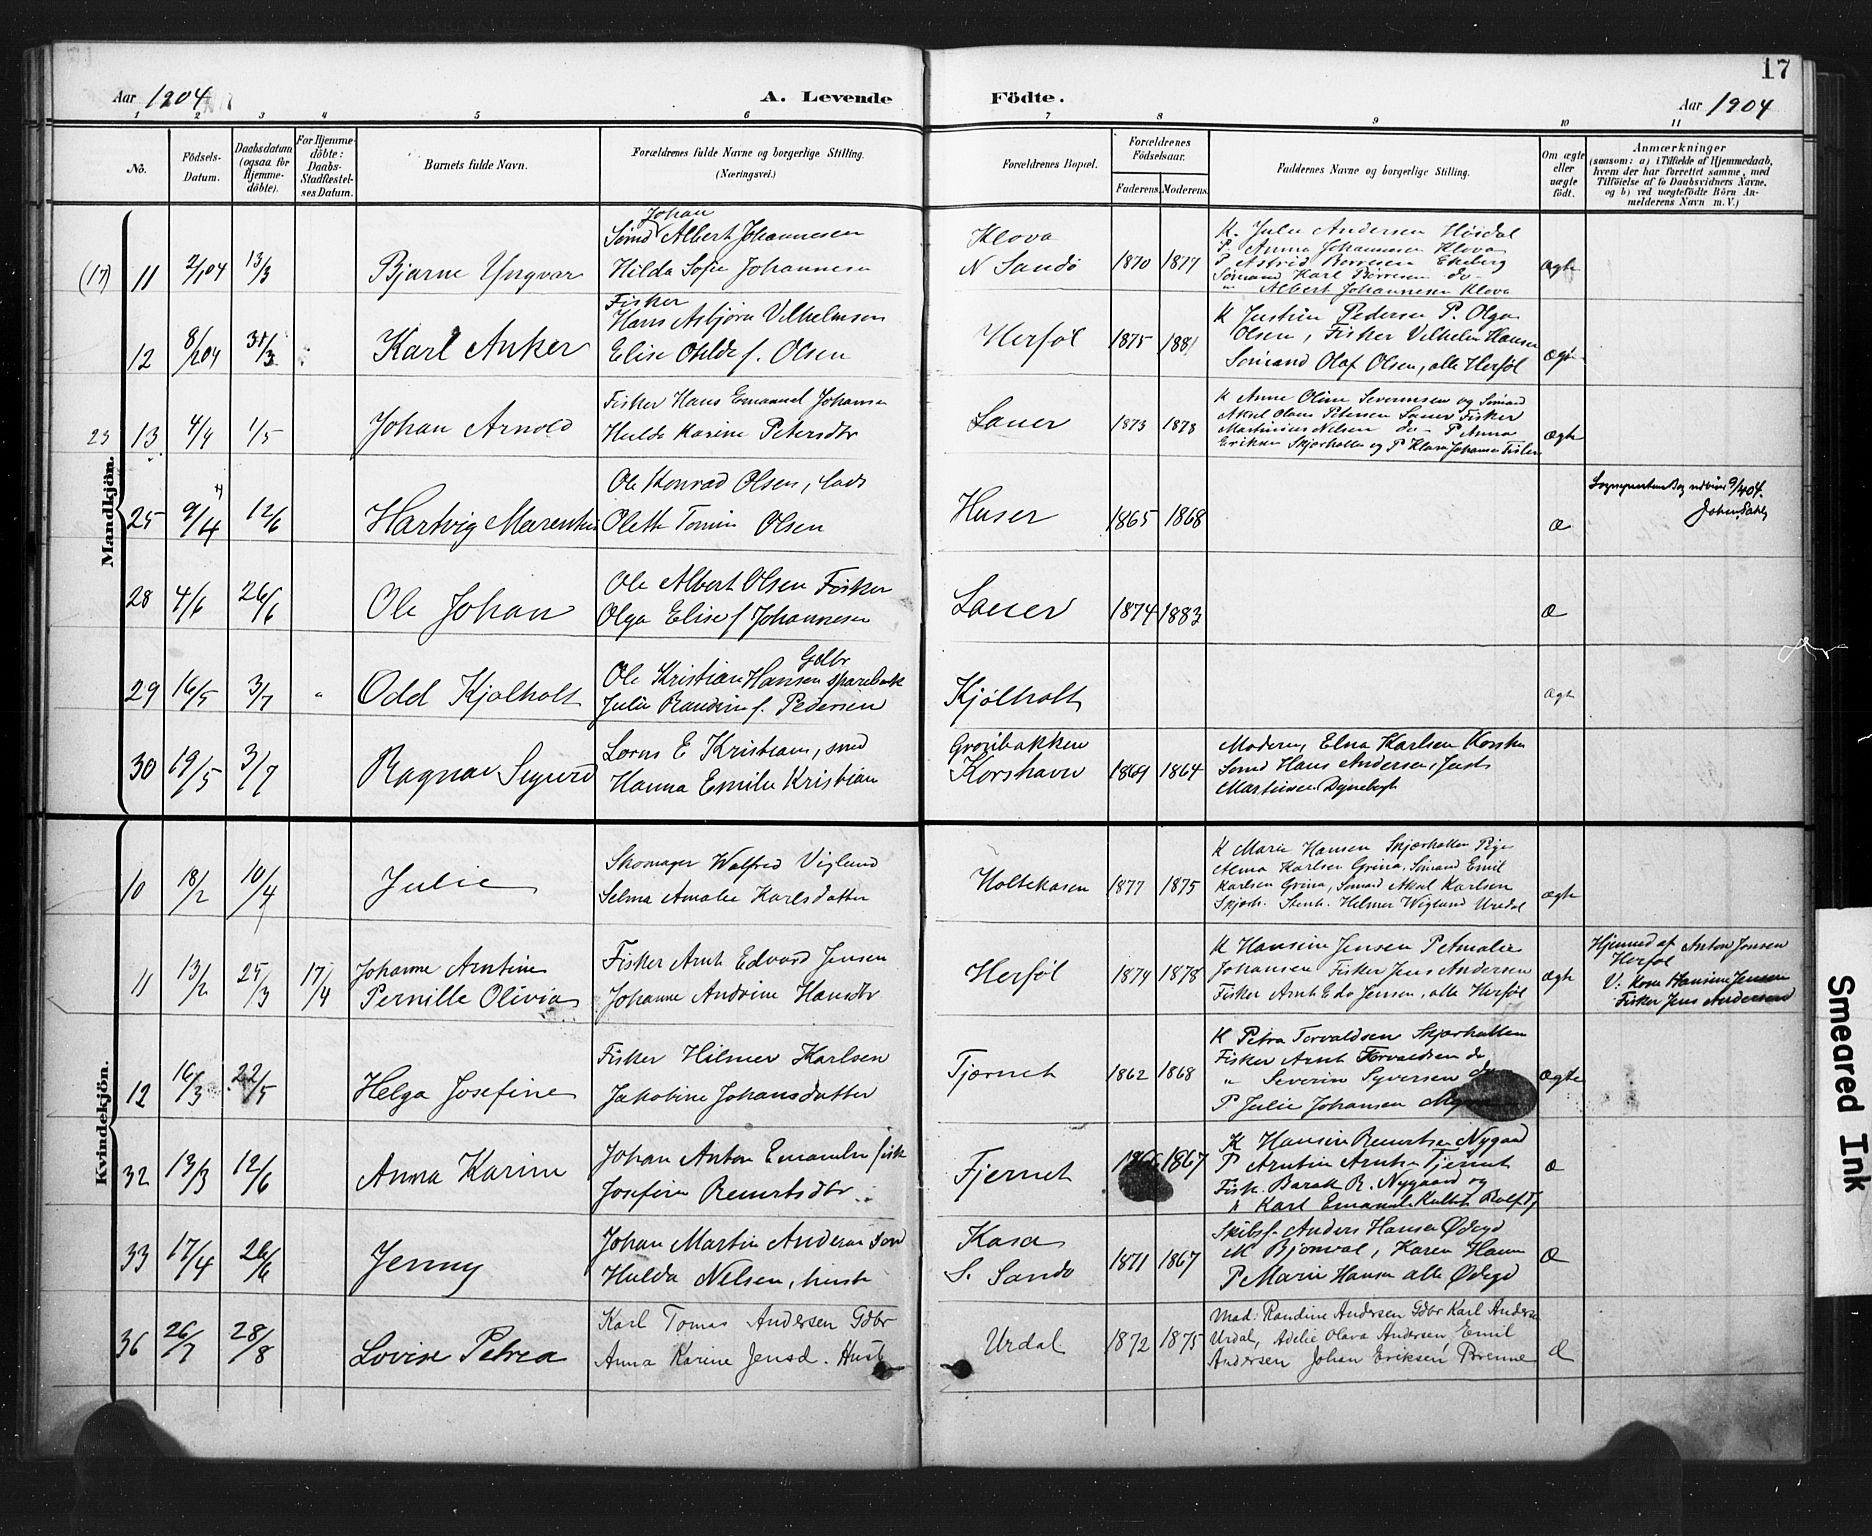 17
Aar 1904 A. Levende Födte. Aar 1904
1 2 3 4 5 6 7 8 9 10 11
No.
Födsels-Datum.
Daabsdatum (ogsaa for Hjemme-döbte).
For Hjemme-döbte: Daabs-Stadfæstel-ses Datum.
Barnets fulde Navn.
Forældrenes fulde Navne og borgerlige Stilling.
(Næringsvei.)
Forældrenes Bopæl.
Forældrenes Födselsaar.
Faderens. Moderens.
Faddernes Navne og borgerlige Stilling.
Om ægte eller uægte født.
Anmærkninger
(saasom: a) i Tilfælde af Hjemmedaab, hvem der har forrettet samme, med Tilföielse af to Daabsvidners Navne, og b) ved uægtefödte Börn An-melderens Navn m. V.)
Mandkjön.
(17) 11 2/1 04 13/3 Bjarne Yngvar
Johan
Sømd Albert Johannesen
Hilda Sofie Johannesen
Klova
N Sandö
1870 1877
K. Julie Andersen Høsdal
P. Anna Johannesen Klova
P Astrid Børresen Ekeberg
Sømand Karl Børresen do
" Albert Johannesen Klova
Ægte
12 8/1 04 31/3 Karl Anker
Fisker
Hans Asbjørn Vilhelmsen
Elise Otilde f. Olsen
Herføl 1875 1881
K Justine Pedersen P. Olga
Olsen, Fisker Vilhelm Hansen
Sømand Olaf Olsen, alle Herføl
Ægte
23 13 4/4 1/5 Johan Arnold
Fisker Hans Emanuel Johansen
Hulda Karine Petersdtr
Lauer 1873 1878
K Anne Oline Severinsen og Sømand
Aksel Olaus Petersen Lauer Fisker
Martinius Nelsen do P Anna
Eriksen Skjærhallen og P Klara Johansen
Ægte
25 9/4 12/6 Hartvig Marentius
Ole Konrad Olsen, Lods
Olette Tomine Olsen
Huser 1865 1868 Æ
28 4/6 26/6 Ole Johan
Ole Albert Olsen Fisker
Olga Elise f Johannesen
Lauer 1874 1883 Æ
29 16/5 3/7 " Odd Kjølholt
Gdbr
Ole Kristian Hansen
Julie Randine f. Pedersen
Kjølholt Ægte
30 19/5 3/7 Ragnar Sigurd
Lorns E Kristians, smd
Hanna Emilie Kristian
Grønbakken
Korshavn
1869 1864
Moderen, Elna Karlsen Korsh
Sømd Hans Andersen, Just
Martinsen
Kvindekjön.
10 18/2 10/4 Julie
Skomager Walfred Viglund
Selma Amalie Karlsdatter
Holtekasen 1877 1875
K Marie Hansen Skjærhallen Pige
Alma Karlsen Grina, Sömand Emil
Karlsen Grina, Sömand Aksel Karlsen
Skjærh. Stenh. Helmer Wiglund Urdal
Ægte
11 13/2 25/3 17/4
Johanne Arntine
Pernille Olivia
Fisker Arnt Edvard Jensen
Johanne Andrine Hansdtr
Herføl 1874 1878
K Hansine Jensen P Amalie
Johansen Fisker Jens Andersen
Fisker Arnt Edv Jensen, alle Herføl
Ægte
Hjemmed af Anton Jensen
Herføl
V: Kone Hansine Jensen
Fisker Jens Andersen
12 16/3 22/5 Helga Josefine
Fisker Hilmer Karlsen
Jakobine Johansdatter
Tjærnet 1862 1868
K Petra Torvaldsen Skjærhallen
Fisker Arnt Torvaldsen do
" Severin Syversen do
P Julie Johansen
Ægte
32 13/3 12/6 Anna Karine
Johan Anton Emanuelsen fisk
Josefine Reiertsdtr
Tjernet 1867
K Hansine Reiertsen Nygaard
P Arntine Arntsen Tjernet
Fisk. Barak R. Nygaard og
" Karl Emanuels
Æ
33 17/4 26/6 Jenny
Johan Martin Andersen
Hulda Nelsen, hust
Kasa
S. Sandö
1871 1867
Skibsf. Anders Hansen Ødegd
M Bjonval, Karen Hansen
P Marie Hansen alle Ødegd
Æ
36 26/7 28/8 Lovise Petrea
Karl Tomas Andersen Gdbr
Anna Karine Jensd. Hust
Urdal 1872 1875
Mad: Randine Andersen Gdbr Karl Andersen
Urdal, Adelie Olava Andersen, Emil
Andersen Johan Eriksen, Brenne
Æ
Smeared Ink